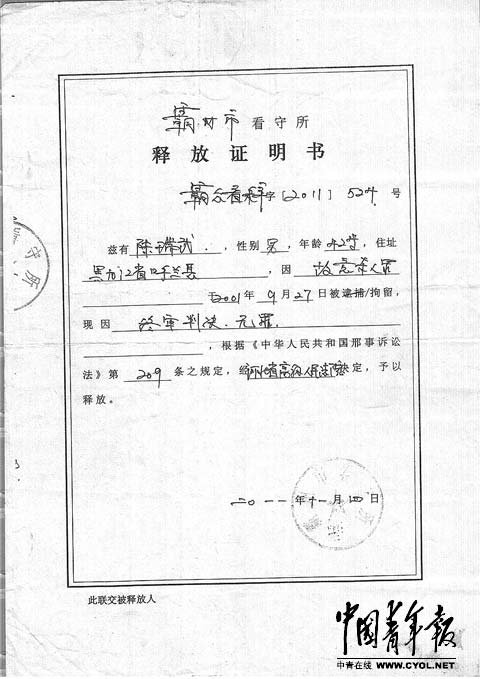 霸州市看守所
释放证明书
霸公看释字〔2011〕524号
兹有陈瑞武，性别男，年龄42岁，住址
黑龙江省呼兰县，因故意杀人罪
于2001年9月27日被逮捕/拘留，
现因终审判决.无罪
，根据《中华人民共和国刑事诉讼
法》第209条之规定，经河北省高级人民法院决定，予以
释放。
二〇一一年十一月四日
此联交被释放人
中国青年报
中青在线 www.CYOL.NET